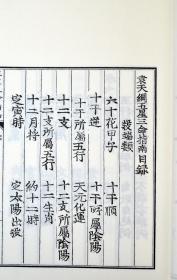 袁天綱五星三命指南目錄
發端類
六十花甲子
十干順
十干逆
十干所屬陰陽
十干所屬五行
天元化運
十二支
十二支所屬陰陽
十二支所屬五行
十二生肖
十二月將
約十二時
定寅時
定太陽出沒